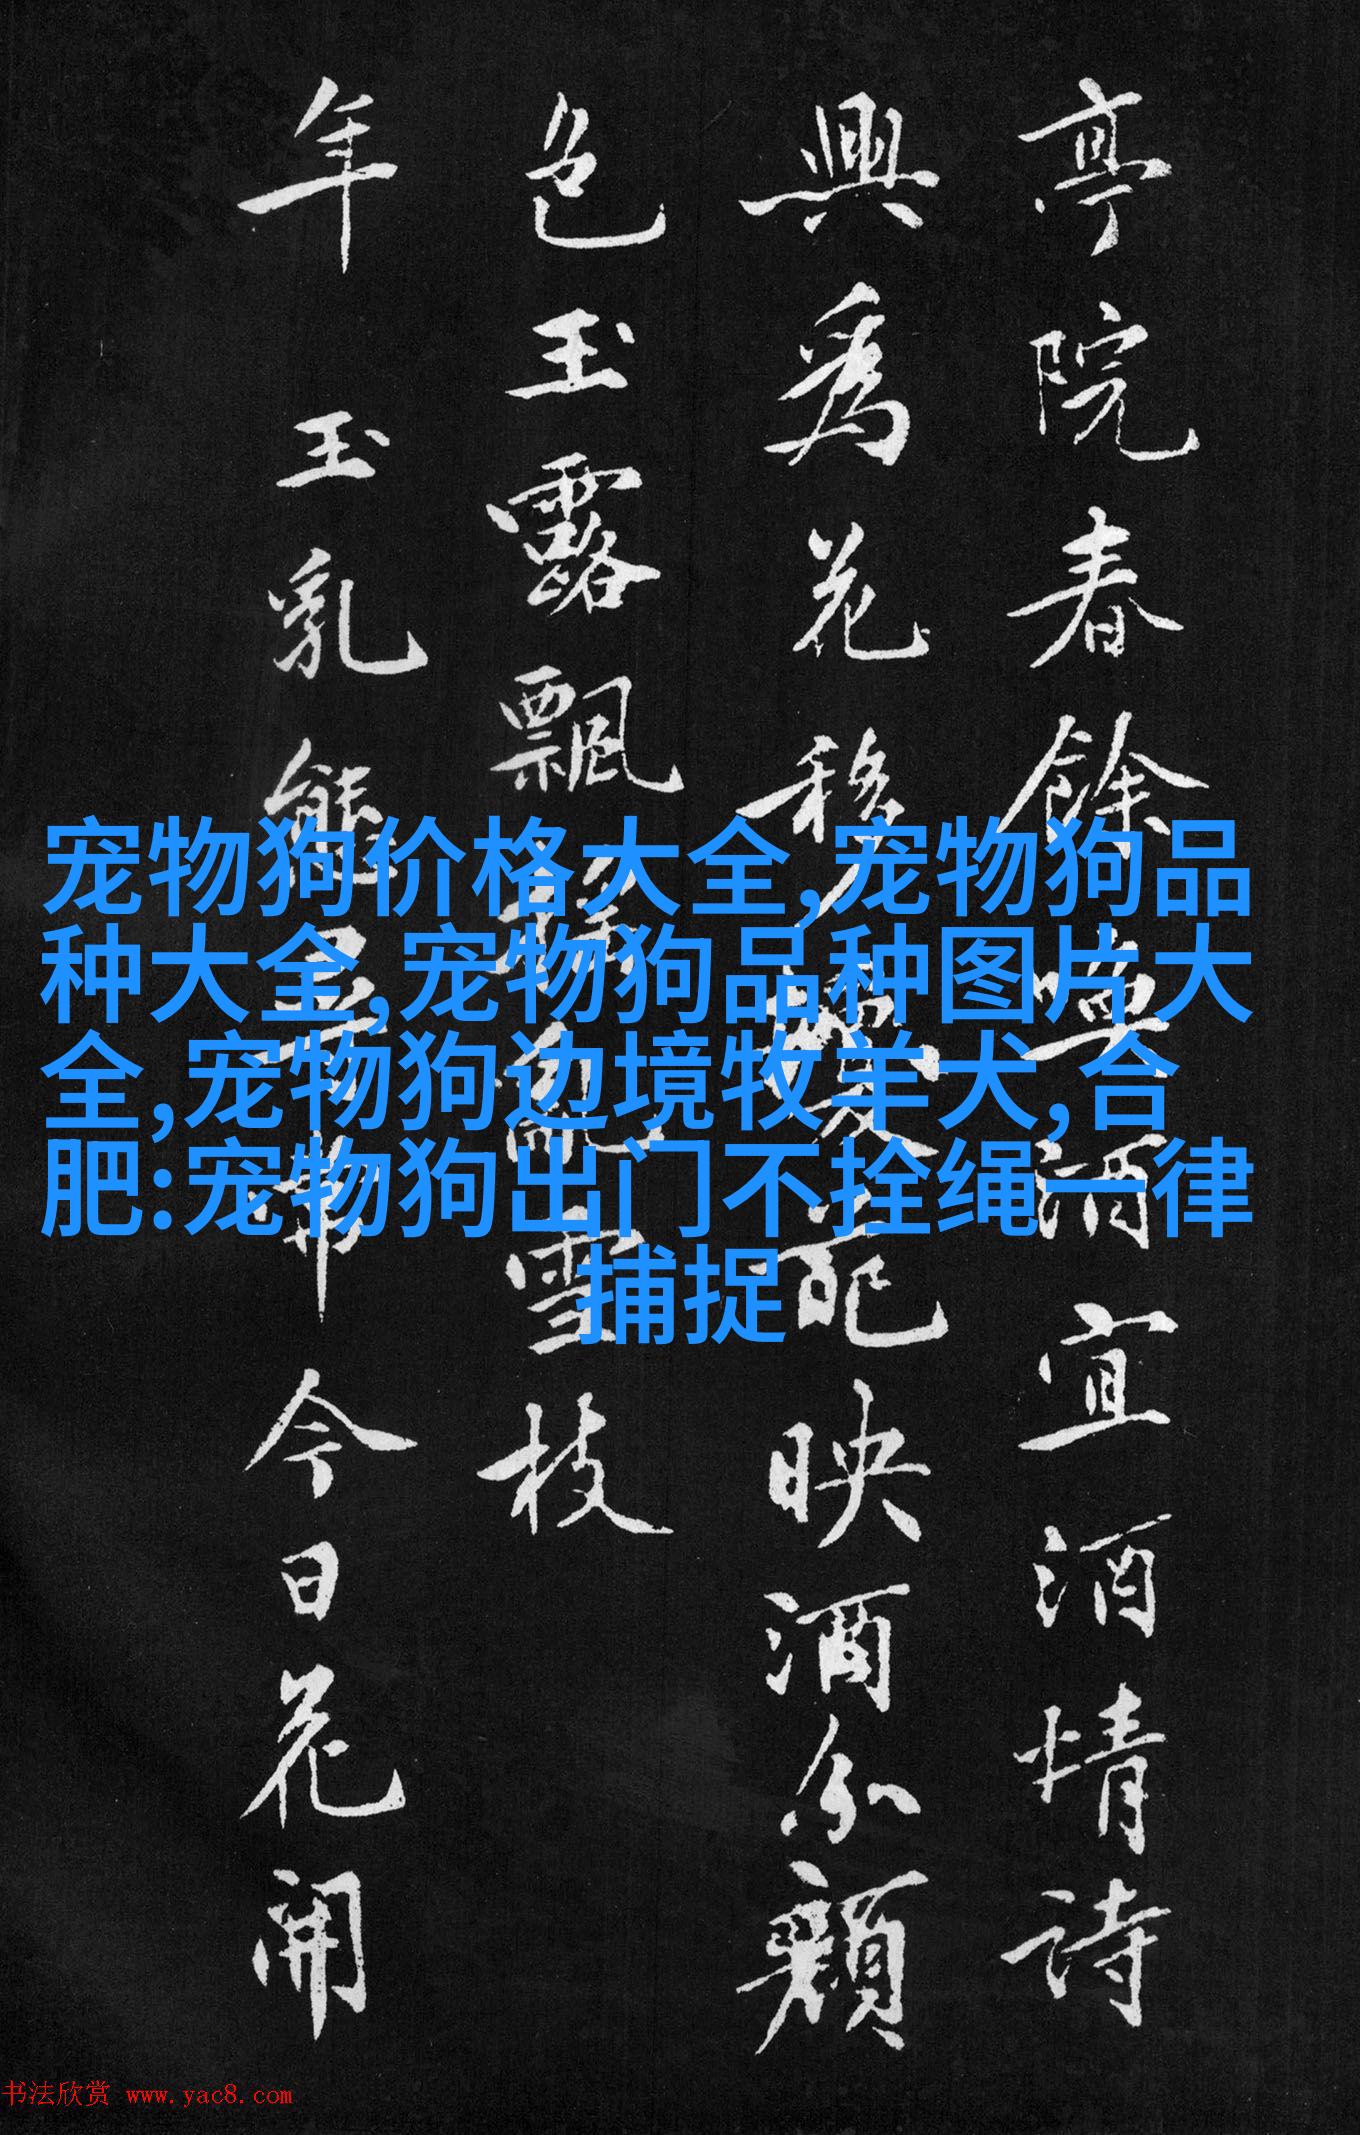 亭院春餘酒宜酒情詩
興爲花移映酒分顏
色玉露飄亂雪枝
年玉乳能今日花開
宠物狗价格大全,宠物狗品
种大全,宠物狗品种图片大
全,宠物狗边境牧羊犬,合
肥:宠物狗出门不拴绳一律
捕捉
书法欣赏 www.yac8.com